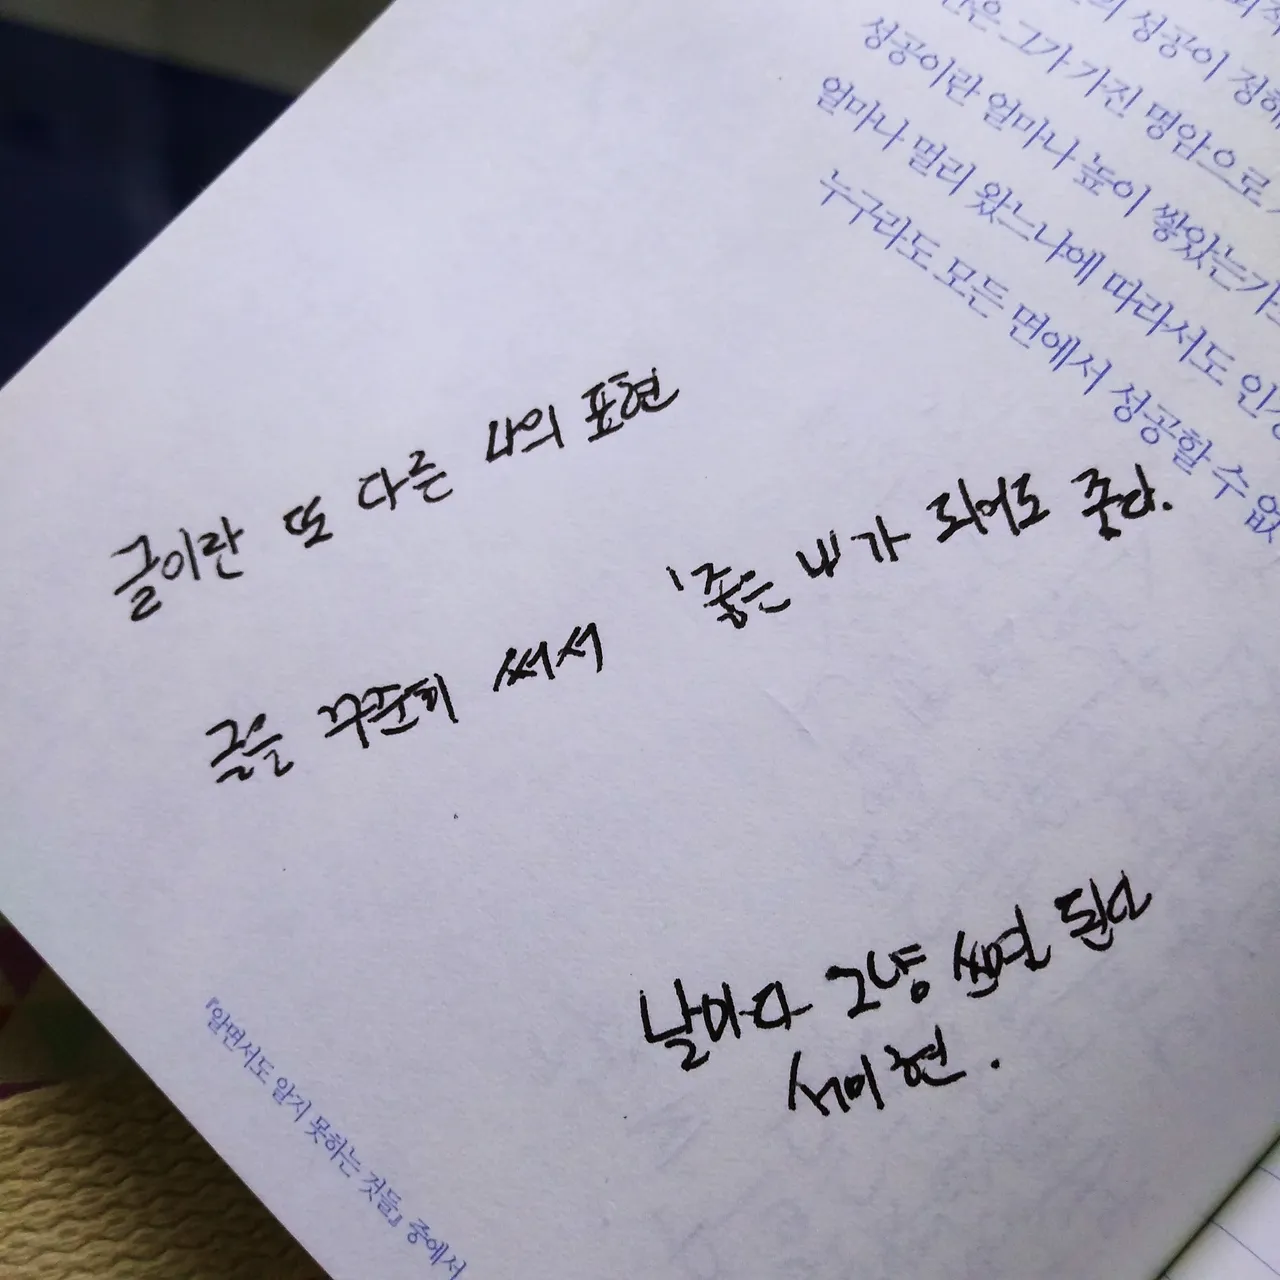 의 성공이 정해
은 그가 가진 명암으로
성공이란 얼마나 높이 쌓았는가
얼마나 멀리 왔느냐에 따라서도 인생
누구라도 모든 면에서 성공할 수 없
글이란 또 다른 나의 표현
글을 꾸준히 써서 '좋은 내가 되어도 좋다.
날마다 그냥 쓰면 된다
서미현.
『알면서도 알지 못하는 것들』 중에서